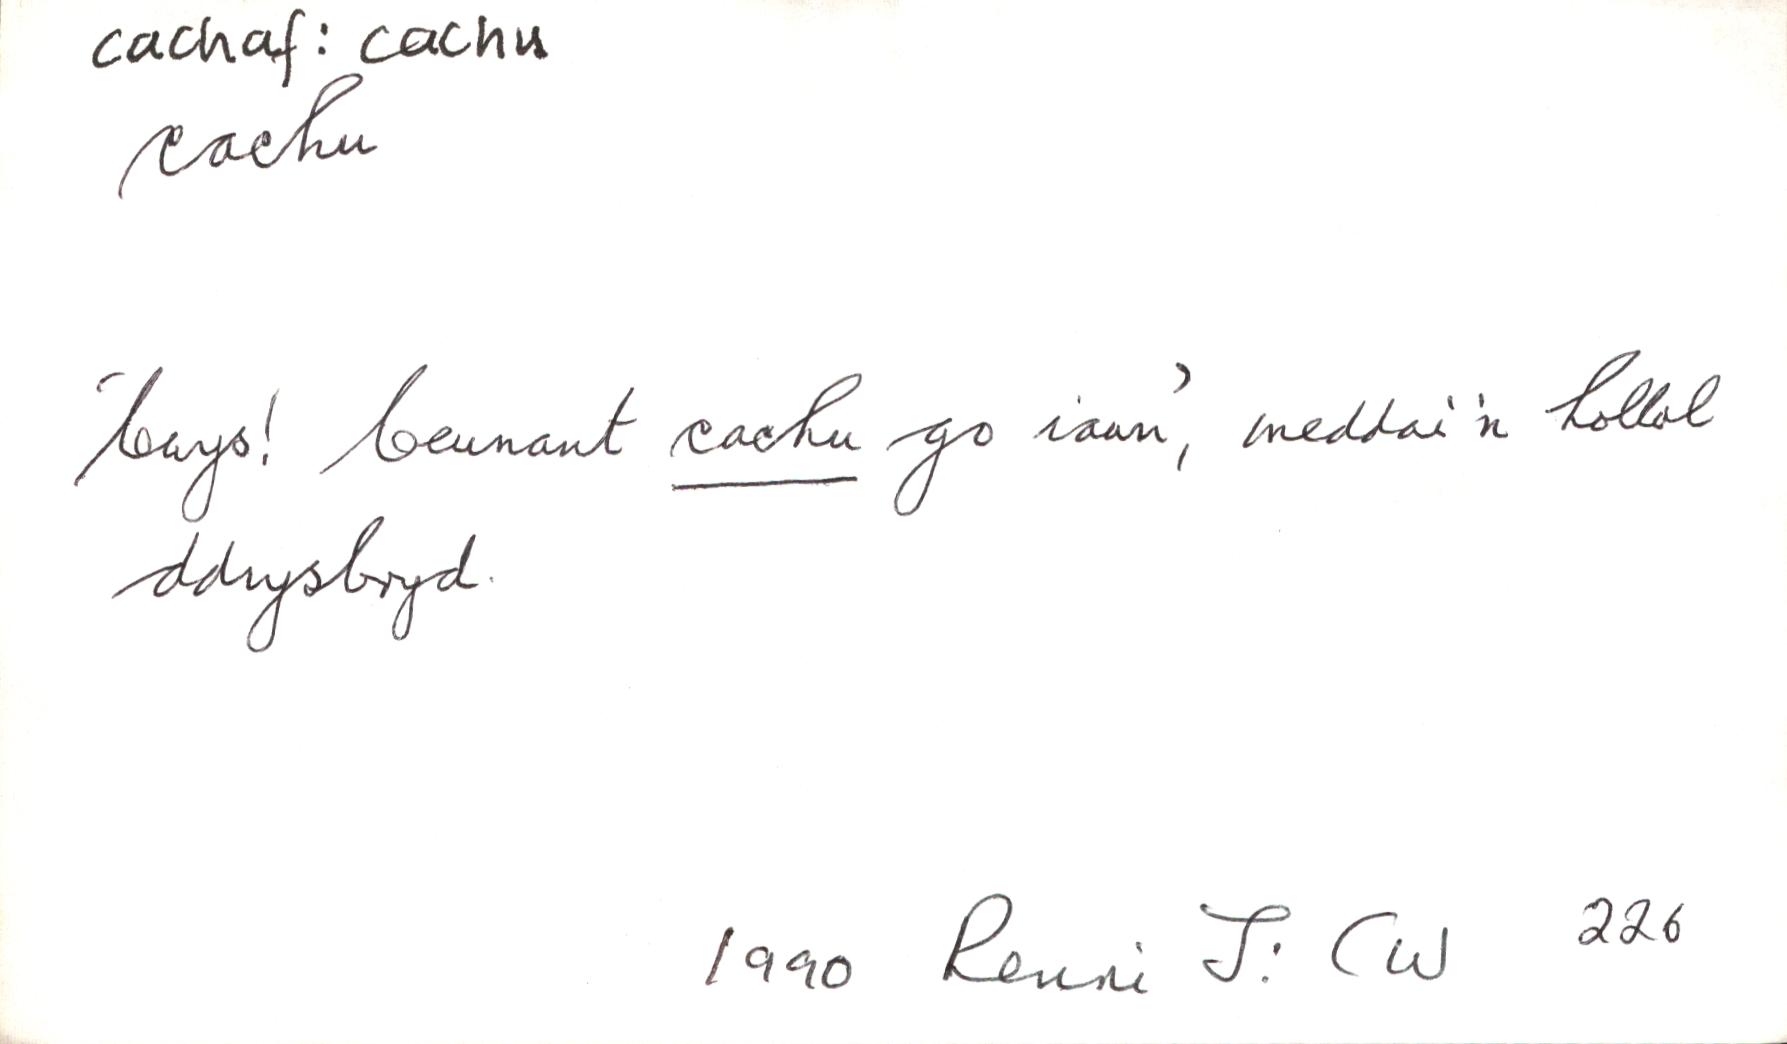 cachaf: cachu
cachu
'bays! beunant cachu go iawn', meddai'n hollol
ddrysbryd.
1990 Renni J: CW 226